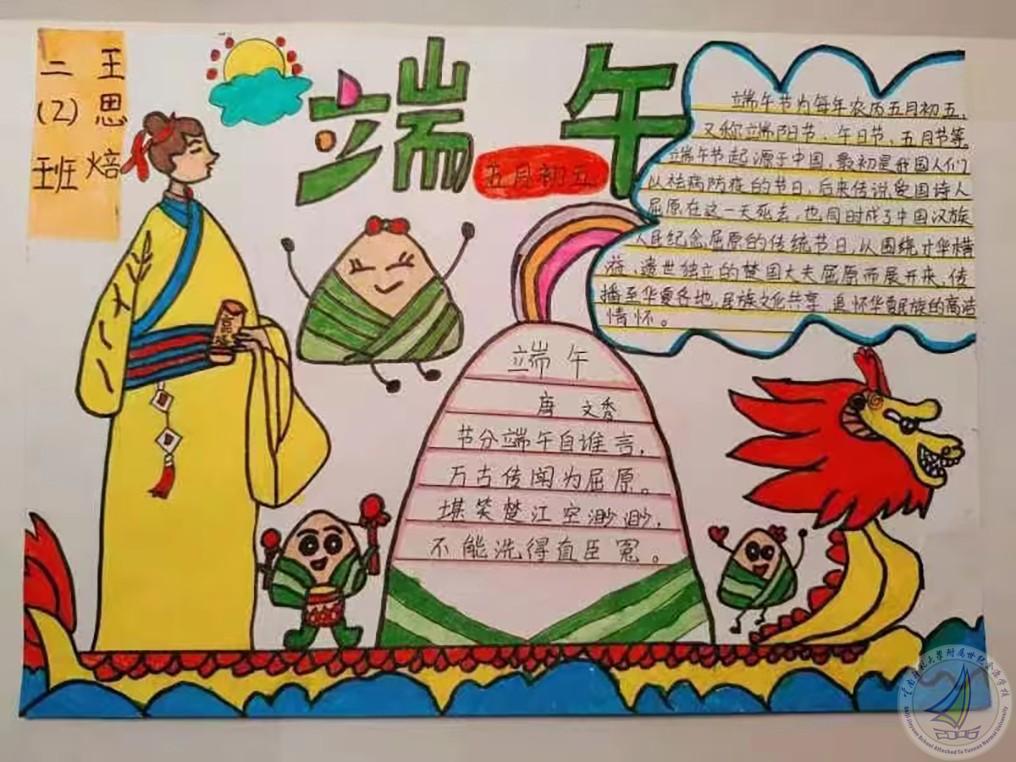 二(2)班
王思焙
端午
五月初五
端午节为每年农历五月初五,
又称端阳节、午日节、五月节等。
端午节起源于中国,最初是我国人们
以祛病防疫的节日,后来传说爱国诗人
屈原在这一天死去,也同时成了中国汉族
人民纪念屈原的传统节日以围绕才华横
溢、遗世独立的楚国大夫屈原而展开来,传
播至华夏各地,民族文化共享,追怀华夏民族的高洁
情怀。
端午
唐 文秀
节分端午自谁言,
万古传闻为屈原。
堪笑楚江空渺渺,
不能洗得直臣冤。
云南师范大学附属世纪金源学校